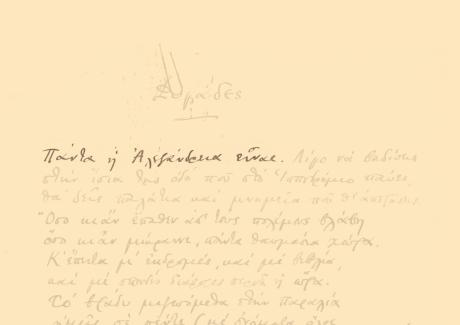 Φυγάδες
Πάντα ἡ Ἀλεξάνδρεια εἶναι. Λίγο νὰ βαδίσεις
στὴν ἴσια της ὁδὸ ποῦ στὸ Ἱπποδρόμιο παύει,
θὰ δεῖς παλάτια καὶ μνημεῖα ποῦ θ' ἀπορήσεις.
Ὅσο κι ἂν ἔπαθεν ἀπ' τοὺς πολέμους βλάβη
ὅσο κι ἂν μίκραινε, πάντα θαυμάσια χώρα.
Κ' ἔπειτα μ' ἐκδρομές, καὶ μὲ βιβλία,
καὶ μὲ σπουδὲς διάφορες περνᾶ ἡ ὥρα.
Τὸ βράδυ μαζευόμεθα στὴν παραλία
ἡμεῖς οἱ πέντε (μὲ ὀνόματα